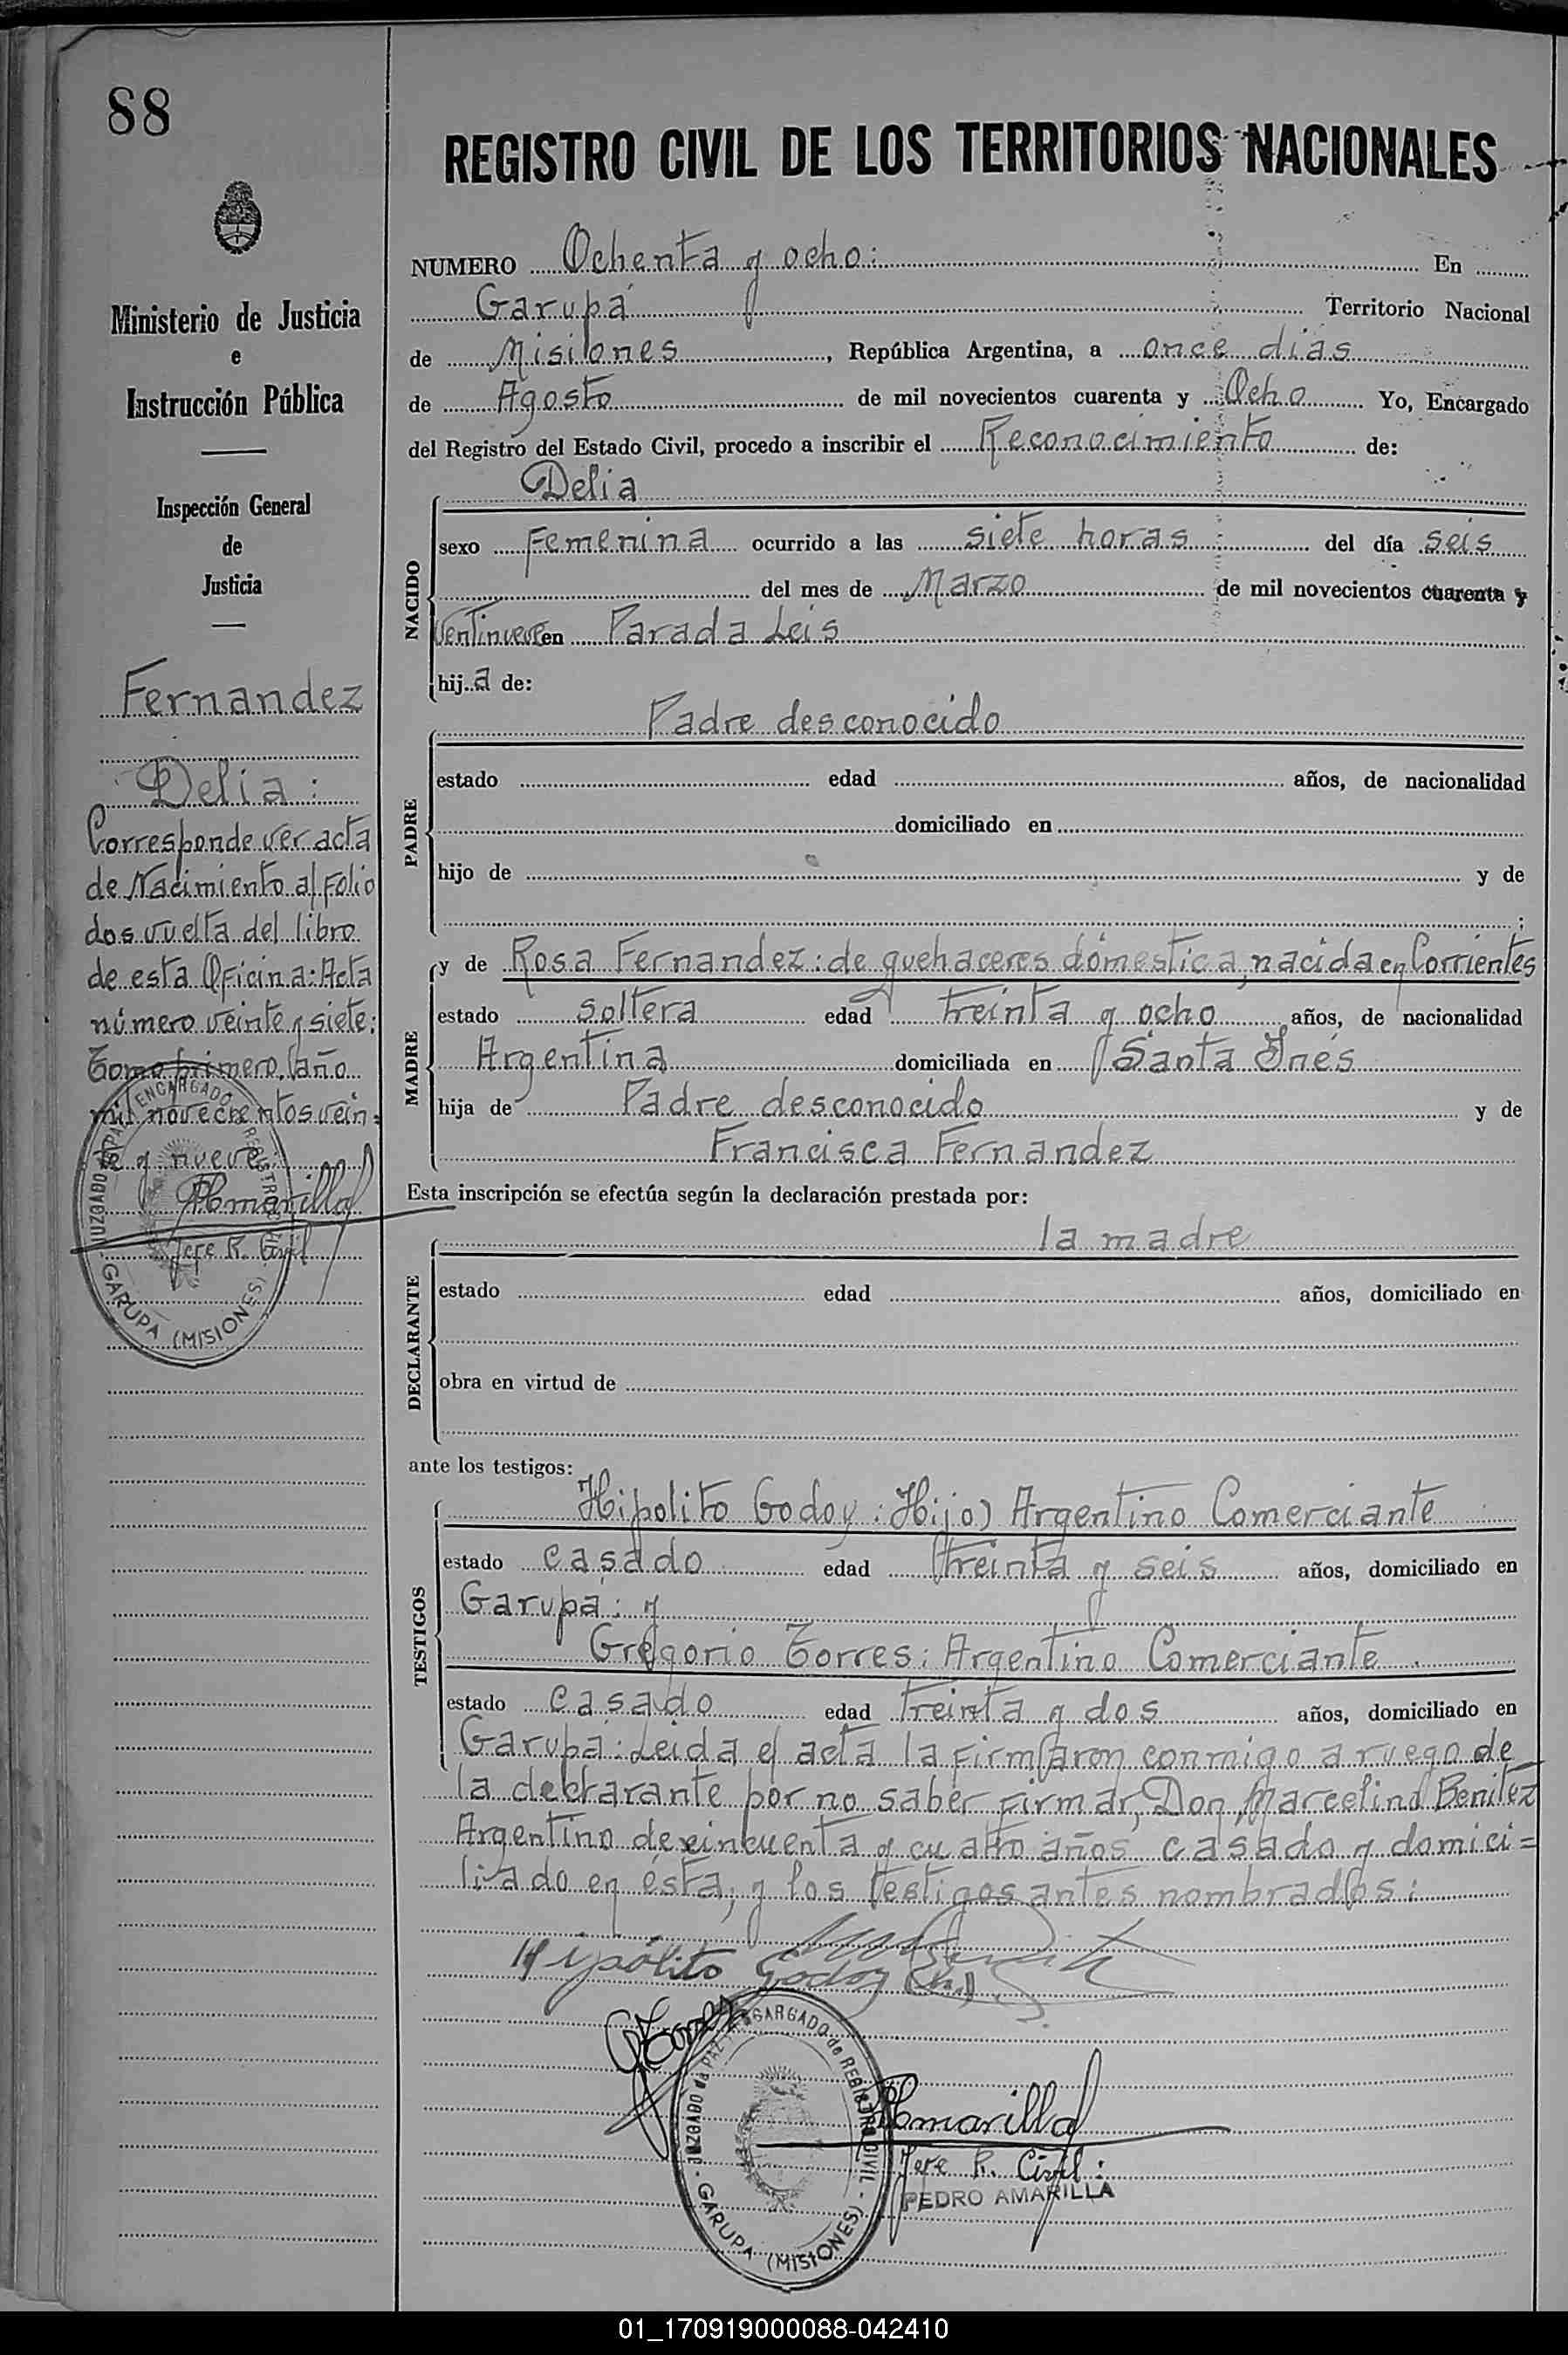 88
REGISTRO CIVIL DE LOS TERRITORIOS NACIONALES
Ministerio de Justicia
e
Instrucción Pública
Inspección General
de
Justicia
Fernandez
Delia:
Corresponde ver acta
de Nacimiento al Folio
dos vuelta del libro
de esta Oficina: Acta
número veinte y siete:
Tomo primero, año
mil novecientos vein=
te y nueve:
PAmarilla
Jefe R. Civil
JUZGADO de PAZ ENCARGADO de REGISTRO CIVIL - GARUPA (MISIONES)
NUMERO Ochenta y ocho: En
Garupá Territorio Nacional
de Misiones, República Argentina, a once días
de Agosto de mil novecientos cuarenta y Ocho Yo, Encargado
del Registro del Estado Civil, procedo a inscribir el Reconocimiento de:
NACIDO
Delia
sexo Femenina ocurrido a las siete horas del día seis
del mes de Marzo de mil novecientos cuarenta y
Ventinueve en Parada Leis
hija de:
PADRE
Padre desconocido
estado edad años, de nacionalidad
domiciliado en
hijo de y de
;
MADRE
y de Rosa Fernandez: de quehaceres doméstica, nacida en Corrientes
estado soltera edad treinta y ocho años, de nacionalidad
Argentina domiciliada en Santa Inés
hija de Padre desconocido y de
Francisca Fernandez
Esta inscripción se efectúa según la declaración prestada por:
DECLARANTE
la madre
estado edad años, domiciliado en
obra en virtud de
ante los testigos:
TESTIGOS
Hipolito Godoy: Hijo) Argentino Comerciante
estado casado edad treinta y seis años, domiciliado en
Garupá: y
Gregorio Torres: Argentino Comerciante
estado casado edad treinta y dos años, domiciliado en
Garupá: Leida el acta la firmaron conmigo a ruego de
la declarante por no saber firmar, Don Marcelino Benitez
Argentino de cincuenta y cuatro años casado y domici=
liado en ésta, y los testigos antes nombrados:
Hipólito Godoy (h.)
GTorres
JUZGADO de PAZ ENCARGADO de REGISTRO CIVIL - GARUPA (MISIONES)
PAmarilla
Jefe R. Civil:
PEDRO AMARILLA
01_170919000088-042410